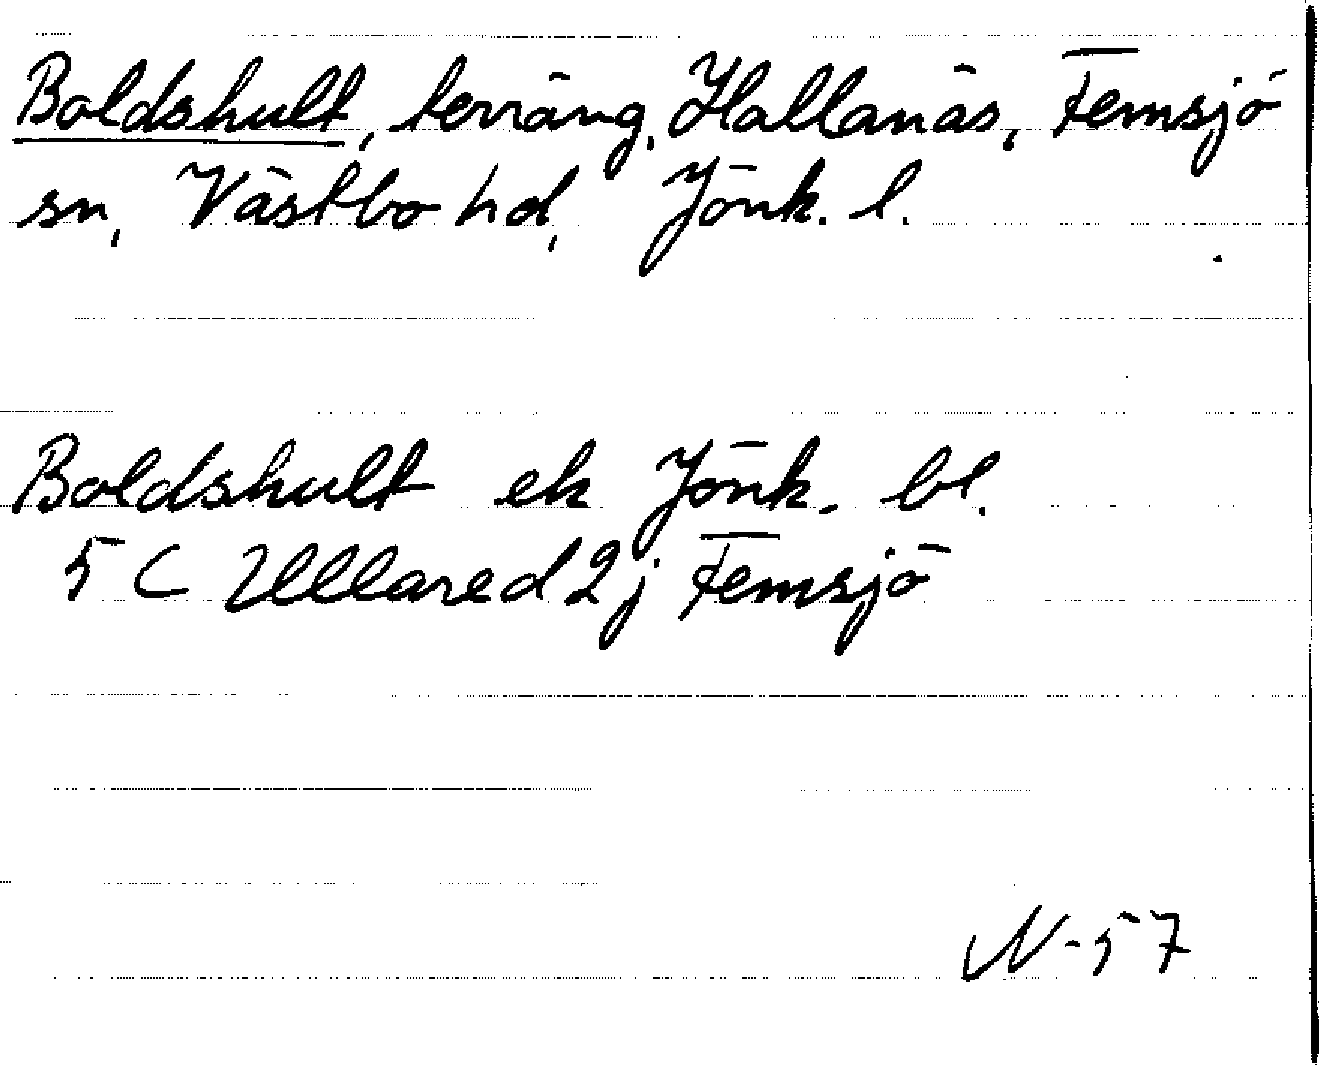 Boldshult, terräng, Hallanäs, Femsjö
sn, Västbo hd, Jönk. l.
Boldshult ek Jönk. bl.
5 C Ullared 2j Femsjö
N-57